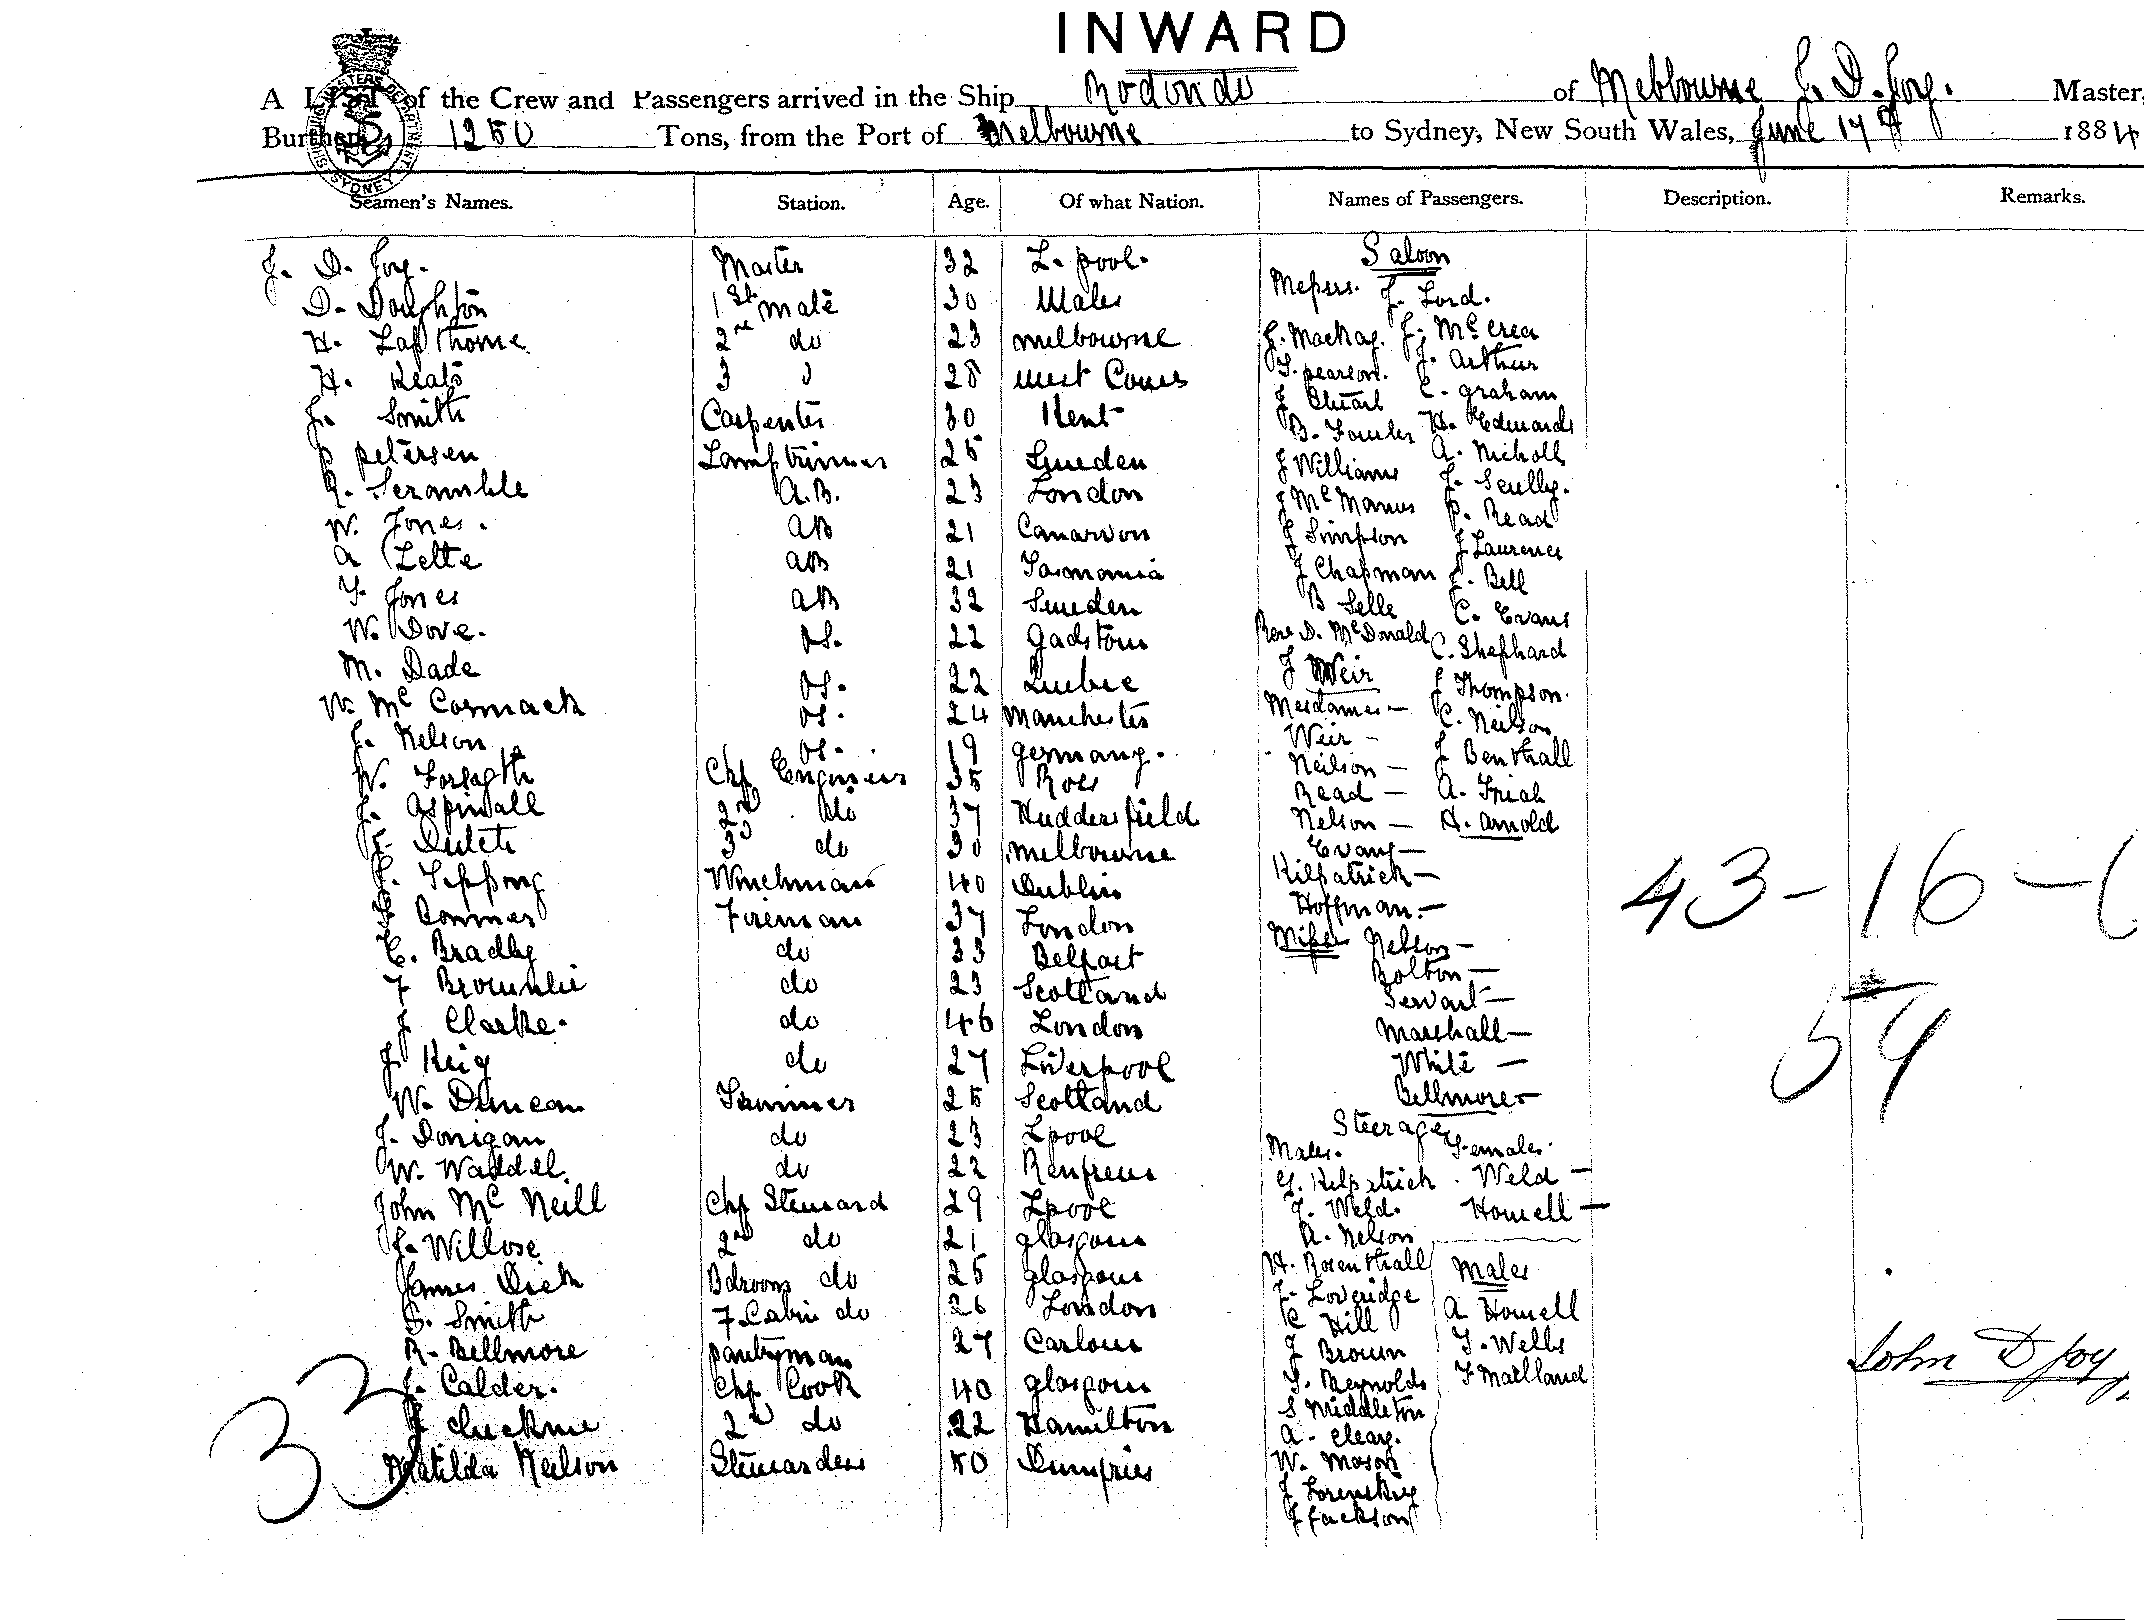 INWARD
A LIST of the Crew and Passengers arrived in the Ship Rodondo of Meblourne J. D. Joy. Master,
Burthen 1250 Tons, from the Port of Melbourne to Sydney, New South Wales, June 17th 1884
SHIPPING MASTERS DEPARTMENT SYDNEY
Seamen's Names. Station. Age. Of what Nation. Names of Passengers. Description. Remarks.
J. D. Joy. Master 32 L. pool.
D. Doughton 1st Mate 30 Wales
H. Lapthorne 2nd do 23 Melbourne
H. Keats 3 28 West Cowes
J. Smith Carpenter 30 Kent
P Petersen Lamptrimmer 25 Sweden
R. Scramble A.B. 23 London
W. Jones. AB 21 Canarvon
A Lette AB 21 Tasmania
T. Jones AB 32 Sweden
W. Dove. OS. 22
M. Dade OS. 22 Quebec
W. McCormack OS. 24 Manchester
J. Nelson OS. 19 Germany.
W. Forsyth Chf Engineer 35 Ross
J. Aspinall 2nd do 37 Huddersfield
3rd do 30 Melbourne
Winchman 40 Dublin
Connor Fireman 37 London
C. Bradby do 33 Belfast
F Brownlie do 23 Scotland
J Clarke. do 46 London
J Keig do 27 Liverpool
W. Duncan Trimmer 25 Scotland
J. Donigan do 23 Lpool
W. Waddel. do 22 Renfrew
John McNeill Chf Steward 29 Lpool
J. Willose 2nd do 21 Glasgow
James Dick Bdroom do 25 Glasgow
S. Smith F Cabin do 26 London
R. Bellmore Pantryman 27 Carlow
J. Calder. Chf Cook 40 Glasgow
J 2nd do 22 Hamilton
Matilda Neilson Stewardess 50 Dumfries
33
Saloon
Messrs. J. Lord.
J. Mackay. J. McCrea
T. Pearson. J. Arthur
J Stuart C. Graham
B. Fowler H. Edwards
J Williams A. Nicholls
J McManus J. Scully.
J Simpson P. Read
J Chapman J Laurence
B Selle E. Bell
Revd D. McDonald C. Evans
J Weir C. Shephard
Mesdames — J Thompson.
Weir — C. Neilson
Neilson — J Benthall
Read — A. Friah
Nelson — H. Arnold
Evans —
Kilpatrick —
Hoffman. —
Miss Nelson —
Bolton —
Servant —
Marshall —
White —
Bellmore —
Steerage
Males. Females.
G. Kilpatrick. Weld —
J. Weld. Howell —
A. Nelson
H. Rosenthall Males
J. Loveridge A Howell
C Hill T. Wells
J Brown F Maitland
T. Reynolds
S Middleton
A. Cleary.
W. Mason
J
J Jackson
43 - 16 -
59
John D Joy